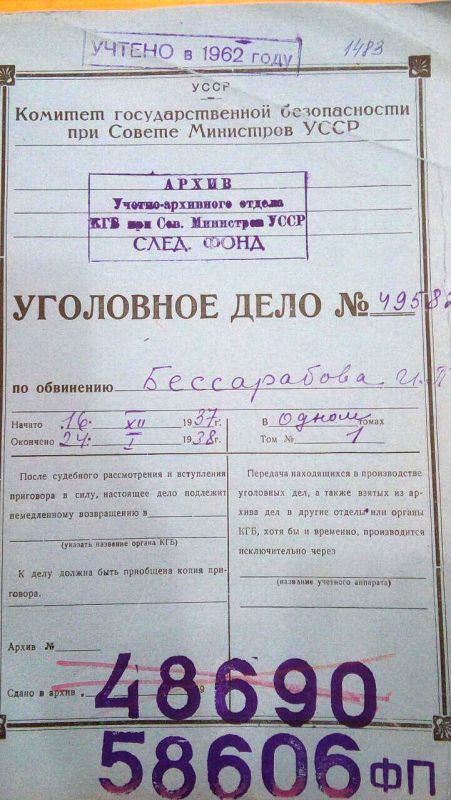 УЧТЕНО в 1962 году
1483
УССР
Комитет государственной безопасности
при Совете Министров УССР
АРХИВ
Учетно-архивного отдела
КГБ при Сов. Министров УССР
СЛЕД. ФОНД
УГОЛОВНОЕ ДЕЛО № 49582
по обвинению Бессарабова И. П
Начато 16. XII 1937 г.
Окончено 24. I 1938 г.
В одном томах
Том № 1
После судебного рассмотрения и вступления
приговора в силу, настоящее дело подлежит
немедленному возвращению в
(указать название органа КГБ)
К делу должна быть приобщена копия при-
говора.
Передача находящихся в производстве
уголовных дел, а также взятых из ар-
хива дел в другие отделы или органы
КГБ, хотя бы и временно, производится
исключительно через
(название учетного аппарата)
Архив №
Сдано в архив
48690
58606 ФП